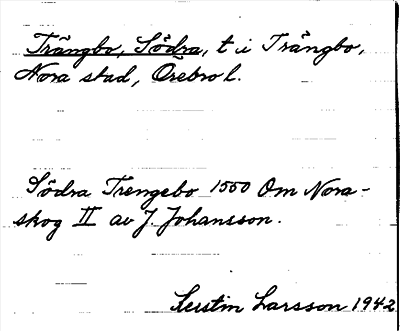 Trångbo, Södra, t. i Trångbo,
Nora stad, Örebro l.
Södra Trengebo 1550 Om Nora-
skog II av J. Johansson.
Larsson 1942